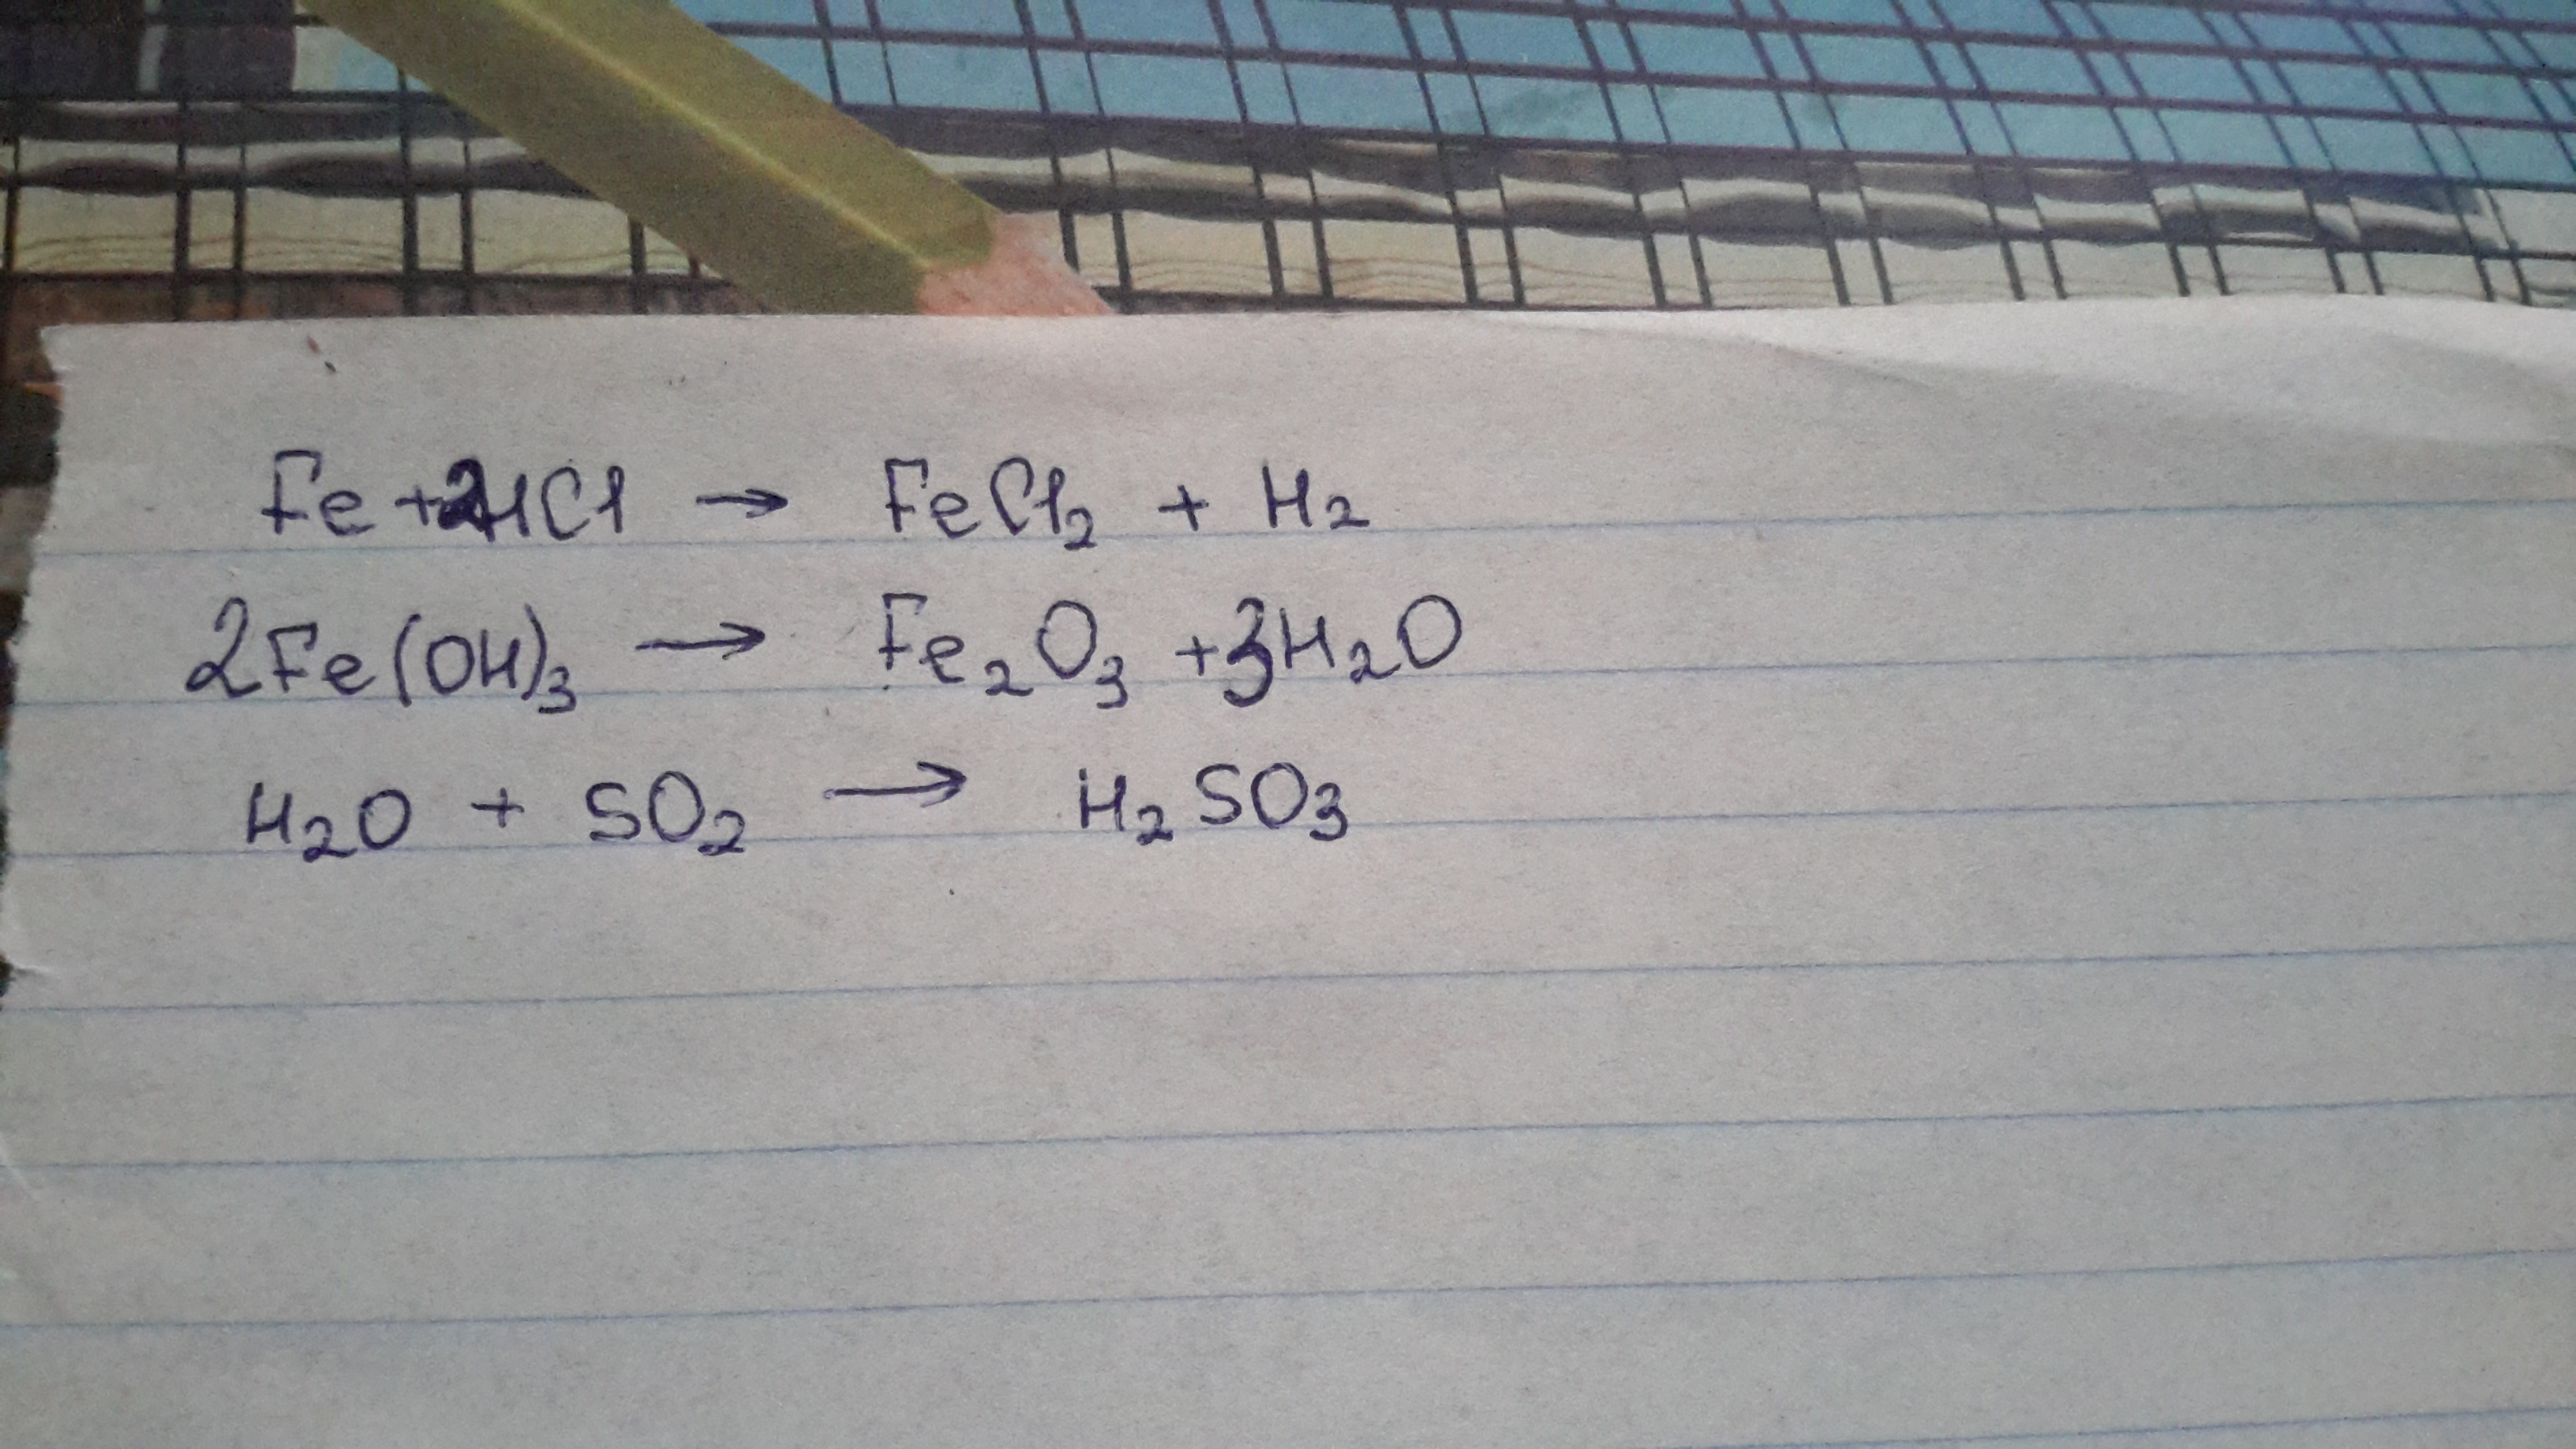 Fe + 2HCl → FeCl₂ + H₂
2Fe(OH)₃ → Fe₂O₃ + 3H₂O
H₂O + SO₂ → H₂SO₃